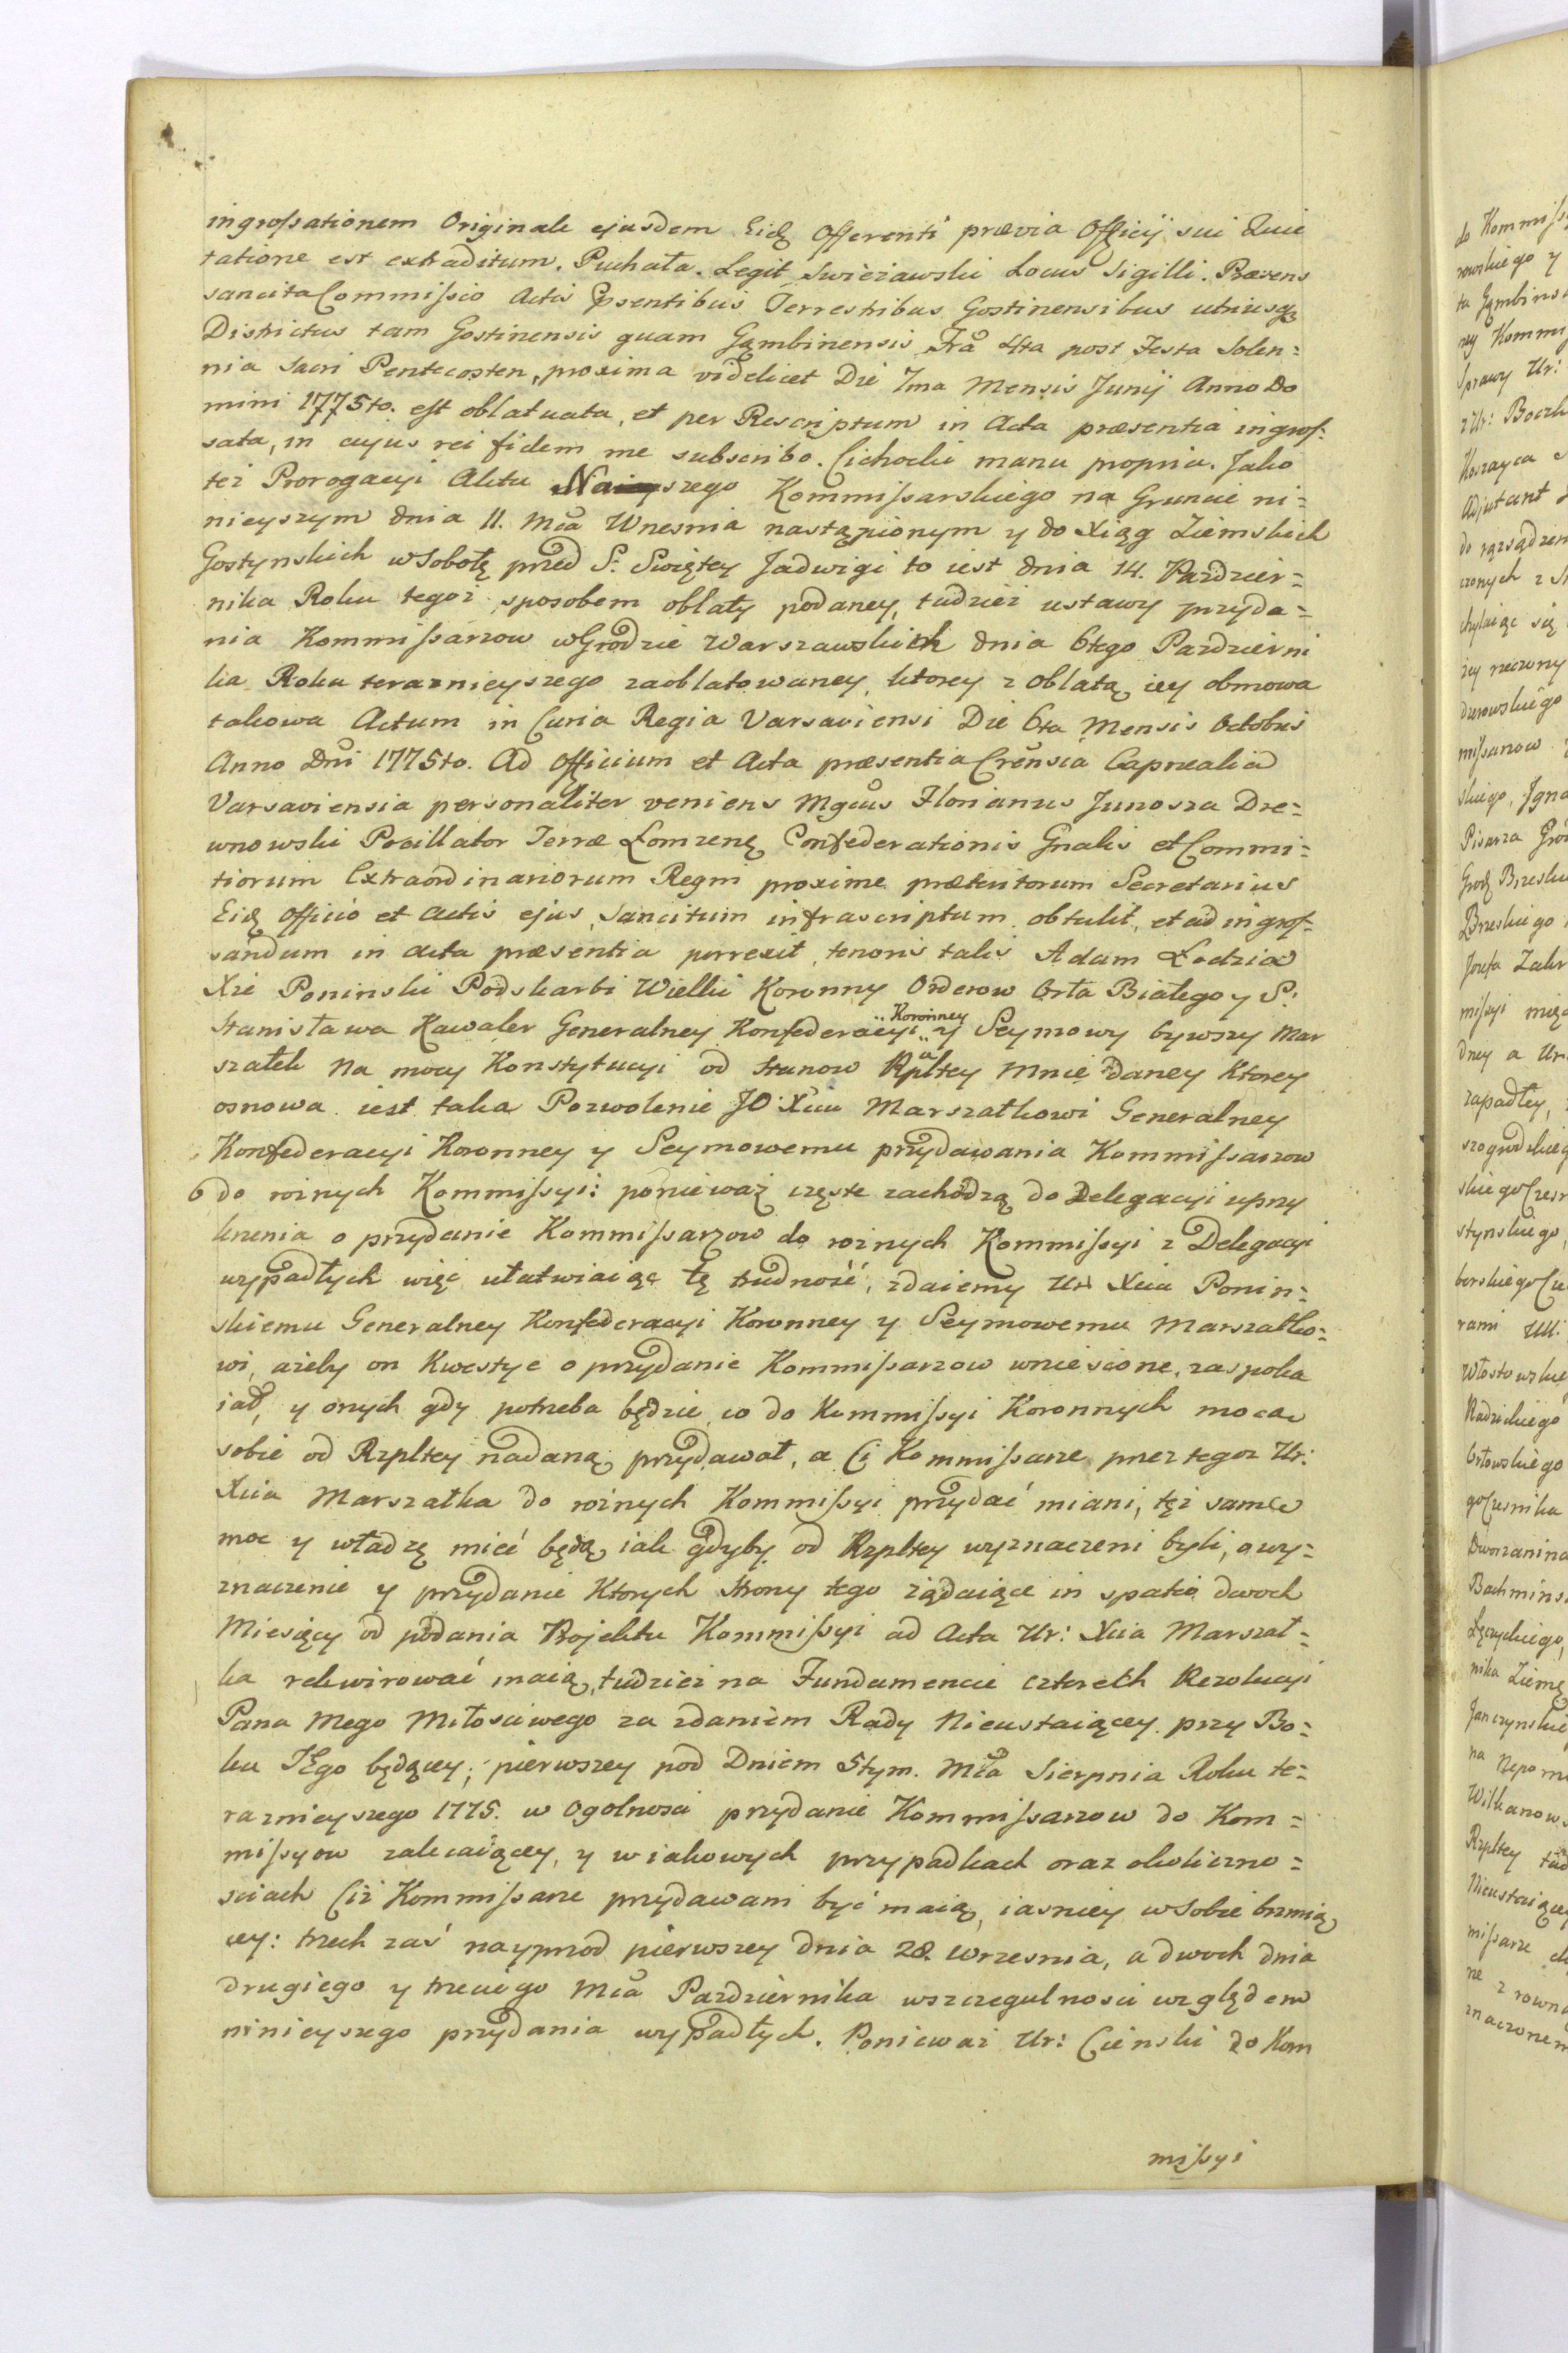 ingrossationem Originale ejusdem Eidę Offerenti prævia Officij sui Quie
tatione est extraditum. Puchała. Legit Swieżawski Locus Sigilli. Præsens
sancita Commissio Actis Psentibus Terrestribus Gostinensibus utriusqę
Districtus tam Gostinensis quam Gąmbinensis Fra 4ta post Festa Solen=
nia Sacri Pentecosten, proxima videlicet Die 7ma Mensis Junij Anno Do
mini 1775to. est oblatuata, et per Rescriptum in Acta præsentia ingros=
sata, in cujus rei fidem me subscribo. Cichocki manu propria. Jako
też Prorogacyi Aktu szego Kommissarskiego na Gruncie ni=
nieyszym dnia 11. Mca Wrzesnia nastąpionym y do Xiąg Ziemskich
Gostynskich w Sobotę przed S. Swiętey Jadwigi to iest dnia 14. Pazdzier=
nika Roku tegoż sposobem oblaty podaney, tudzież ustawy przyda=
nia Kommissarzow w Grodzie Warszawskich dnia 6tego Pazdzierni
ka Roku teraznieyszego zaoblatowaney, ktorey z oblatą iey obmowa
takowa Actum in Curia Regia Varsaviensi Die 6ta Mensis Octobris
Anno Dni 1775to. Ad Officium et Acta præsentia Crensia Capnealia
Varsaviensia personaliter veniens Mgcus Florianus Junosza Dre=
wnowski Pocillator Terræ Łomzenę Confederationis Gnalis et Commi=
tiorum Extraordinariorum Regni proxime præteritorum Secretarius
Eidę Officio et Actis ejus, Sancitum infrascriptum obtulit, et ad ingros=
sandum in Acta præsentia porrexit, tenoris talis Adam Łodzia
Xże Poninski Podskarbi Wielki Koronny Orderow Orła Białego y S:
Stanisława Kawaler Generalney Konfederacyi Koronney y Seymowy bywszy Mar
szałek Na mocy Konstytucyi od Stanow Rpltey Mnie daney Ktorey
osnowa iest taka Pozwolenie JO Xciu Marszałkowi Generalney
Konfederacyi Koronney y Seymowemu przydawania Kommissarzow
do rożnych Kommissyi: ponieważ częste zachodzą do Delegacyi uprzy
krzenia o przydanie Kommissarzow do rożnych Kommissyi z Delegacyi
wypadłych więc ułatwiaiąc tę trudność, zdaiemy Ur: Xcia Ponin=
skiemu Generalney Konfederacyi Koronney y Seymowemu Marszałko=
wi, ażeby on Kwestye o przydanie Kommissarzow wniesione, zaspoka
iał, y onych gdy potrzeba będzie, co do Kommissyi Koronnych mocą
sobie od Rzpltey nadaną przydawał, a Ci Kommissarze przez tegoż Ur:
Xcia Marszałka do rożnych Kommissyi przydać miani, tęż samą
moc y władzę mieć będą iak gdyby od Rzpltey wyznaczeni byli, o wy=
znaczenie y przydanie Ktorych Strony tego żądaiące in spatio dwoch
Miesięcy od podania Projektu Kommissyi ad Acta Ur: Xcia Marszał=
ka rekwirować maią, tudzież na Fundamencie czterech Rezolucyi
Pana Mego Miłosciwego za zdaniem Rady Nieustaiącey przy Bo=
ku JEgo będącey; pierwszey pod Dniem 5tym. Mca Sierpnia Roku te=
raznieyszego 1775. w Ogolnosci przydanie Kommissarzow do Kom=
missyow zalecaiącey, y w iakowych przypadkach oraz okoliczno=
sciach Ciż Kommissarze przydawani być maią, iasniey w Sobie brzmią
cey: trzech zaś nayprzod pierwszey dnia 28. Wrzesnia, a dwoch dnia
drugiego y trzeciego Mca Pazdziernika wszczegulnosci względem
ninieyszego przydania wypadłych. Ponieważ Ur: Cienski do Kom
missyi